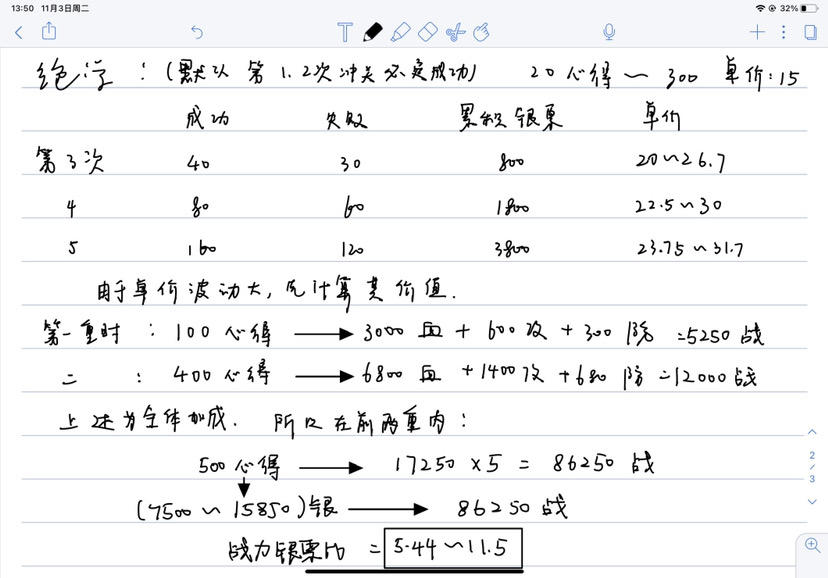 13:50 11月3日周二 32%
绝学：(默认第1.2次冲关必定成功) 20心得～300 单价:15
成功 失败 累积银票 单价
第3次 40 30 800 20～26.7
4 80 60 1800 22.5～30
5 160 120 3800 23.75～31.7
由于单价波动大,先计算其价值.
第一重时：100心得 → 3000血+600攻+300防=5250战
二：400心得 → 6800血+1400攻+680防=12000战
上述为全体加成. 所以在前两重内：
500心得 → 17250×5=86250战
↓
(7500～15850)银 → 86250战
战力银票比 = 5.44～11.5
2/3